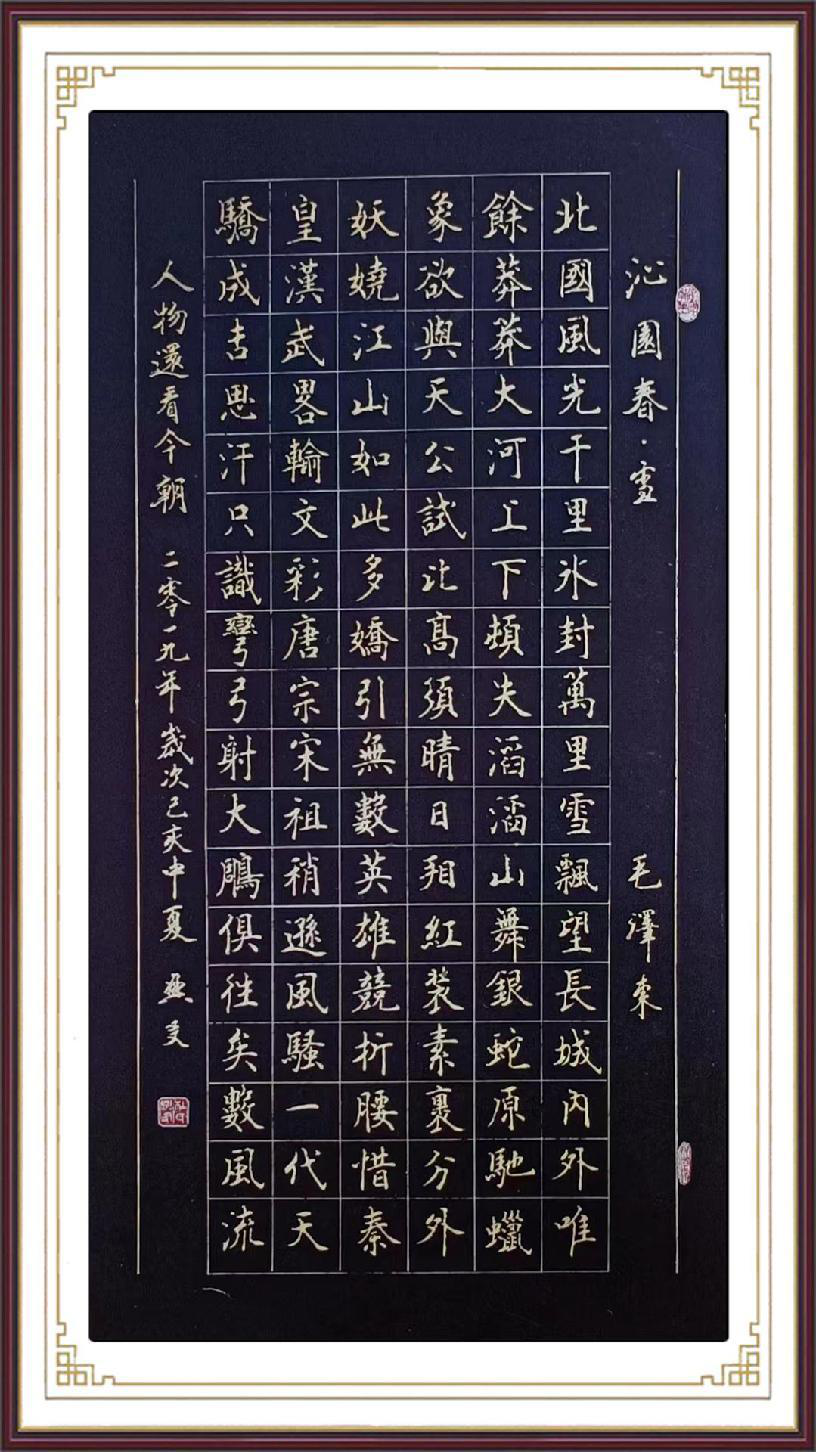 沁園春·雪 毛澤東
北國風光千里氷封萬里雪飄望長城內外唯
餘莽莽大河上下頓失滔滔山舞銀蛇原馳蠟
象欲與天公試比髙須晴日紅裝素裹分外
妖嬈江山如此多嬌引無數英雄競折腰惜秦
皇漢武畧輸文彩唐宗宋祖稍遜風騷一代天
驕成吉思汗只識彎弓射大鵰俱往矣數風流
人物還看今朝 二零一九年歲次己亥中夏